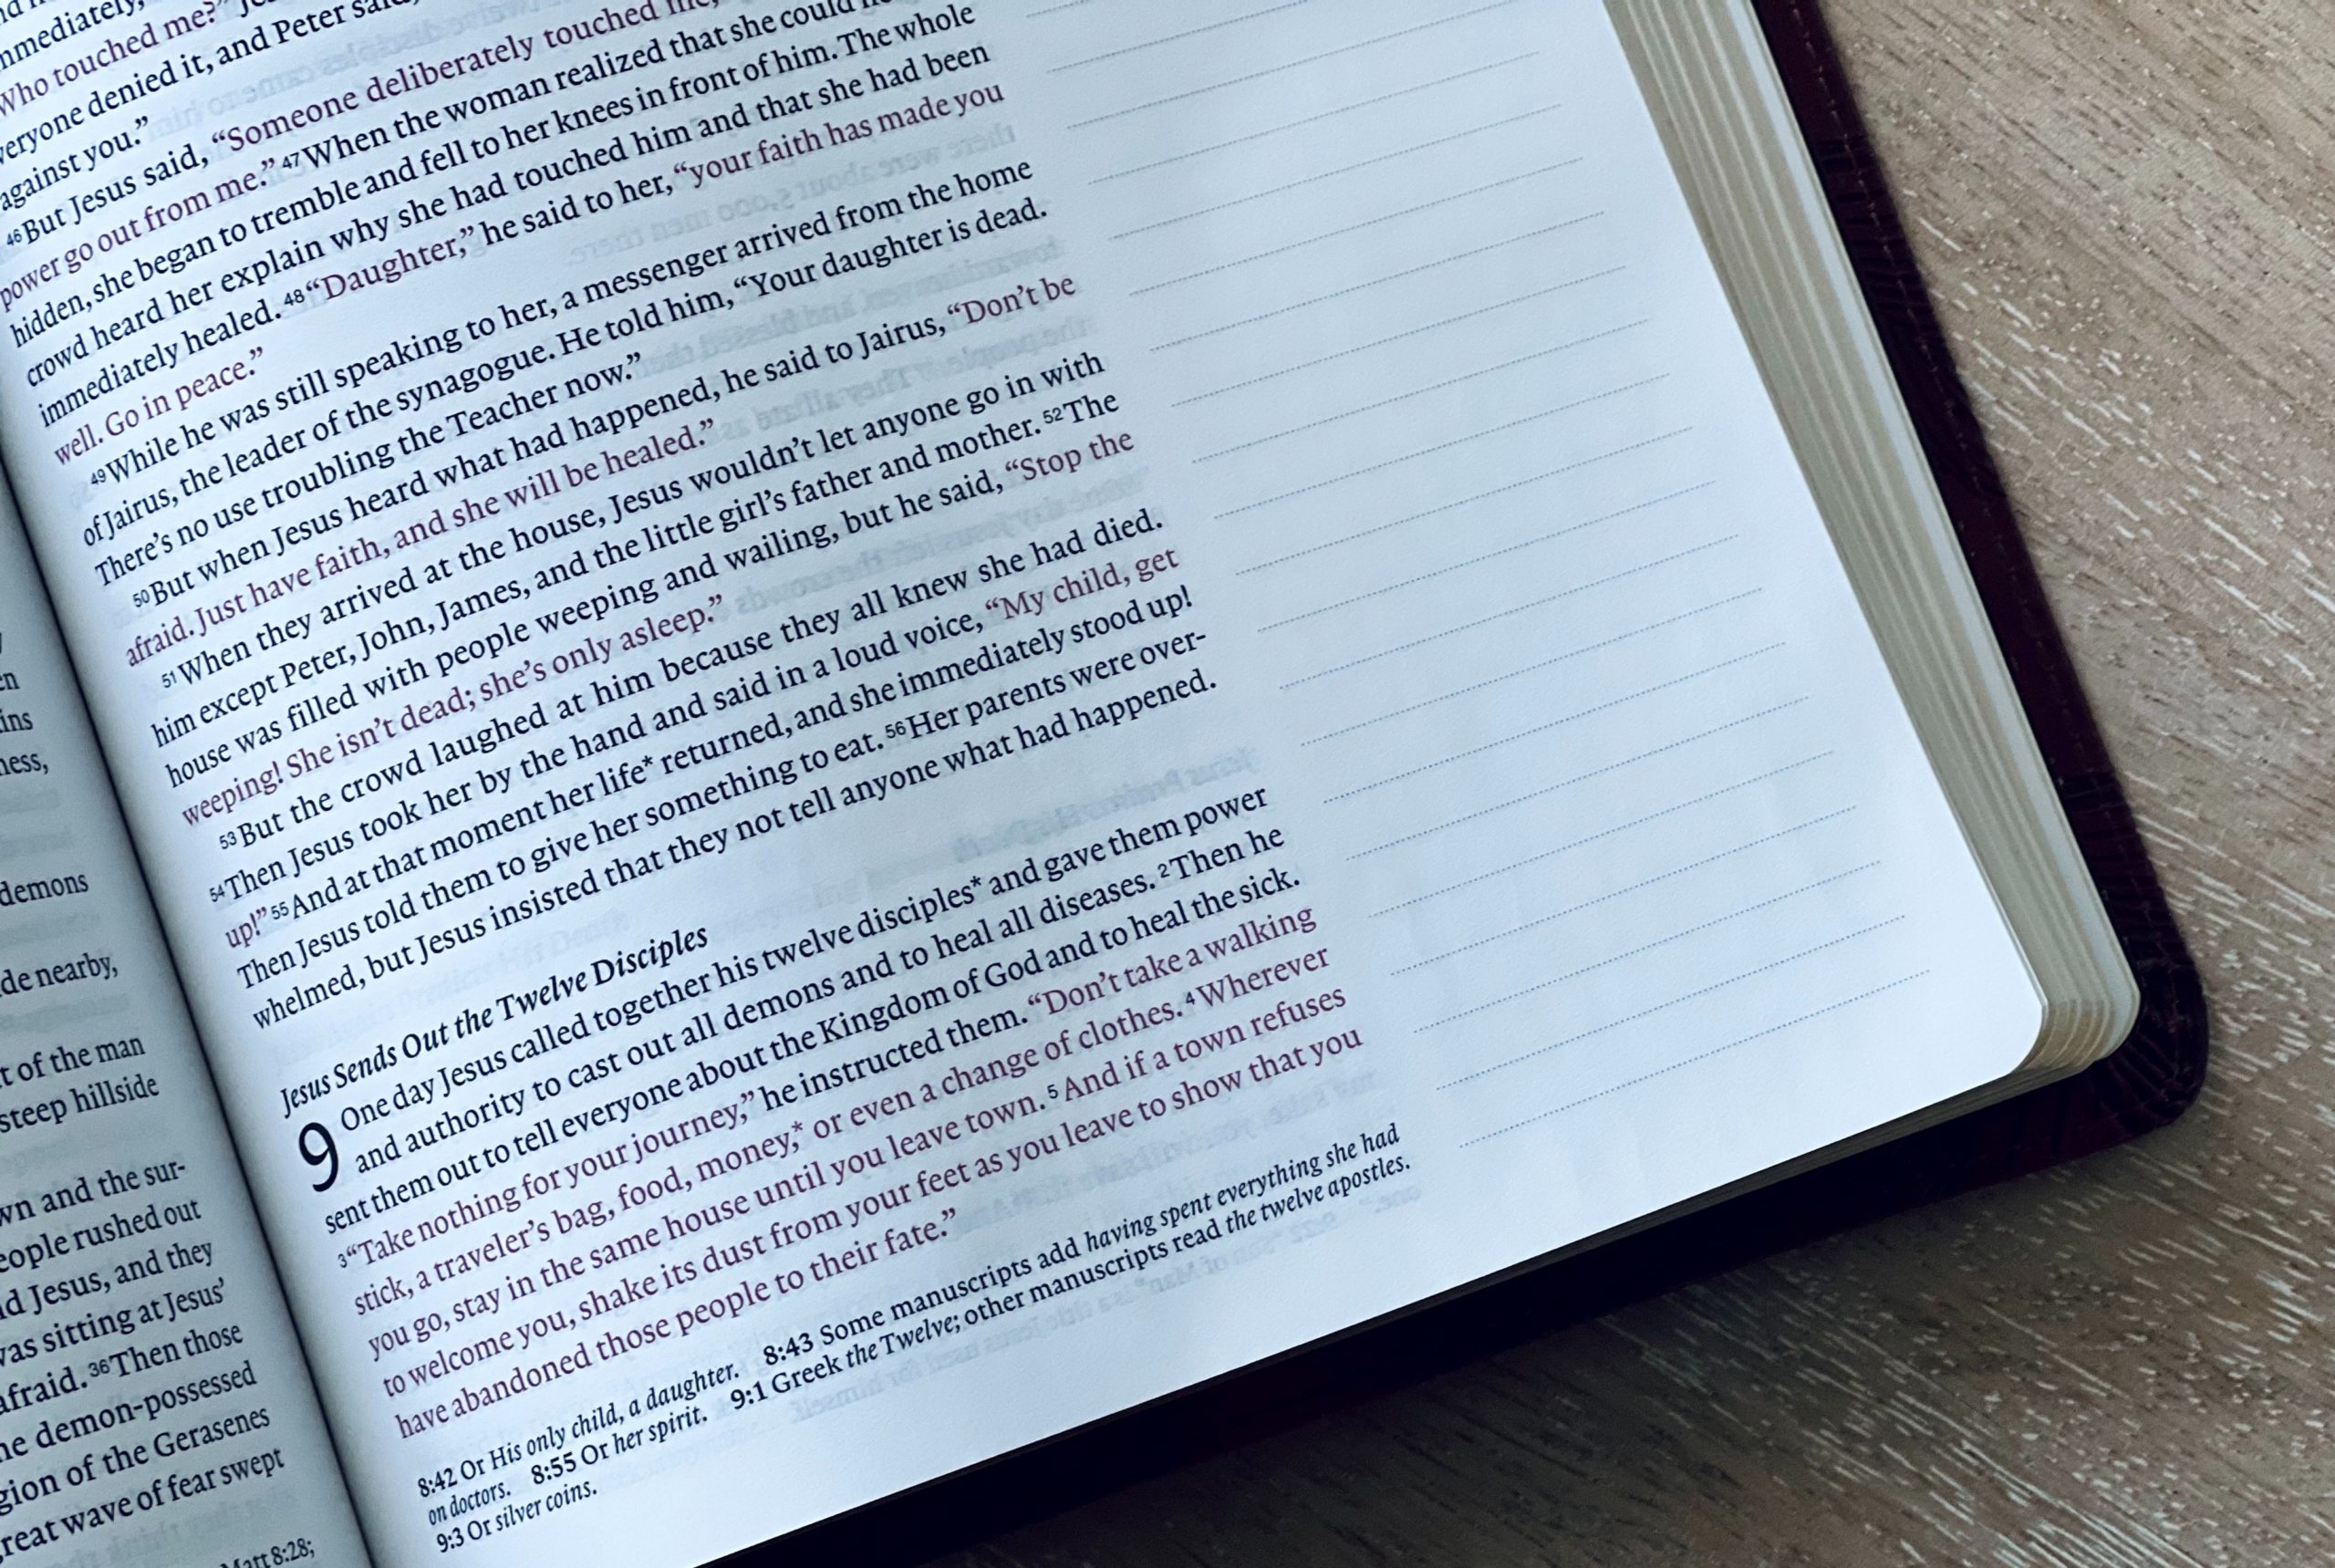 demons
de nearby,
t of the man
steep hillside
wn and the sur-
eople rushed out
d Jesus, and they
was sitting at Jesus'
afraid. 36Then those
he demon-possessed
gion of the Gerasenes
reat wave of fear swept
Matt 8:28;
Who touched me?"
everyone denied it, and Peter said,
against you."
46But Jesus said, "Someone deliberately touched me,
power go out from me." 47When the woman realized that she could
hidden, she began to tremble and fell to her knees in front of him. The whole
crowd heard her explain why she had touched him and that she had been
immediately healed. 48"Daughter," he said to her, "your faith has made you
well. Go in peace."
49While he was still speaking to her, a messenger arrived from the home
of Jairus, the leader of the synagogue. He told him, "Your daughter is dead.
There's no use troubling the Teacher now."
50But when Jesus heard what had happened, he said to Jairus, "Don't be
afraid. Just have faith, and she will be healed."
51When they arrived at the house, Jesus wouldn't let anyone go in with
him except Peter, John, James, and the little girl's father and mother. 52The
house was filled with people weeping and wailing, but he said, "Stop the
weeping! She isn't dead; she's only asleep."
53But the crowd laughed at him because they all knew she had died.
54Then Jesus took her by the hand and said in a loud voice, "My child, get
up!" 55And at that moment her life* returned, and she immediately stood up!
Then Jesus told them to give her something to eat. 56Her parents were over-
whelmed, but Jesus insisted that they not tell anyone what had happened.
Jesus Sends Out the Twelve Disciples
9 One day Jesus called together his twelve disciples* and gave them power
and authority to cast out all demons and to heal all diseases. 2Then he
sent them out to tell everyone about the Kingdom of God and to heal the sick.
3"Take nothing for your journey," he instructed them. "Don't take a walking
stick, a traveler's bag, food, money,* or even a change of clothes. 4Wherever
you go, stay in the same house until you leave town. 5And if a town refuses
to welcome you, shake its dust from your feet as you leave to show that you
have abandoned those people to their fate."
8:42 Or His only child, a daughter. 8:43 Some manuscripts add having spent everything she had
on doctors. 8:55 Or her spirit. 9:1 Greek the Twelve; other manuscripts read the twelve apostles.
9:3 Or silver coins.